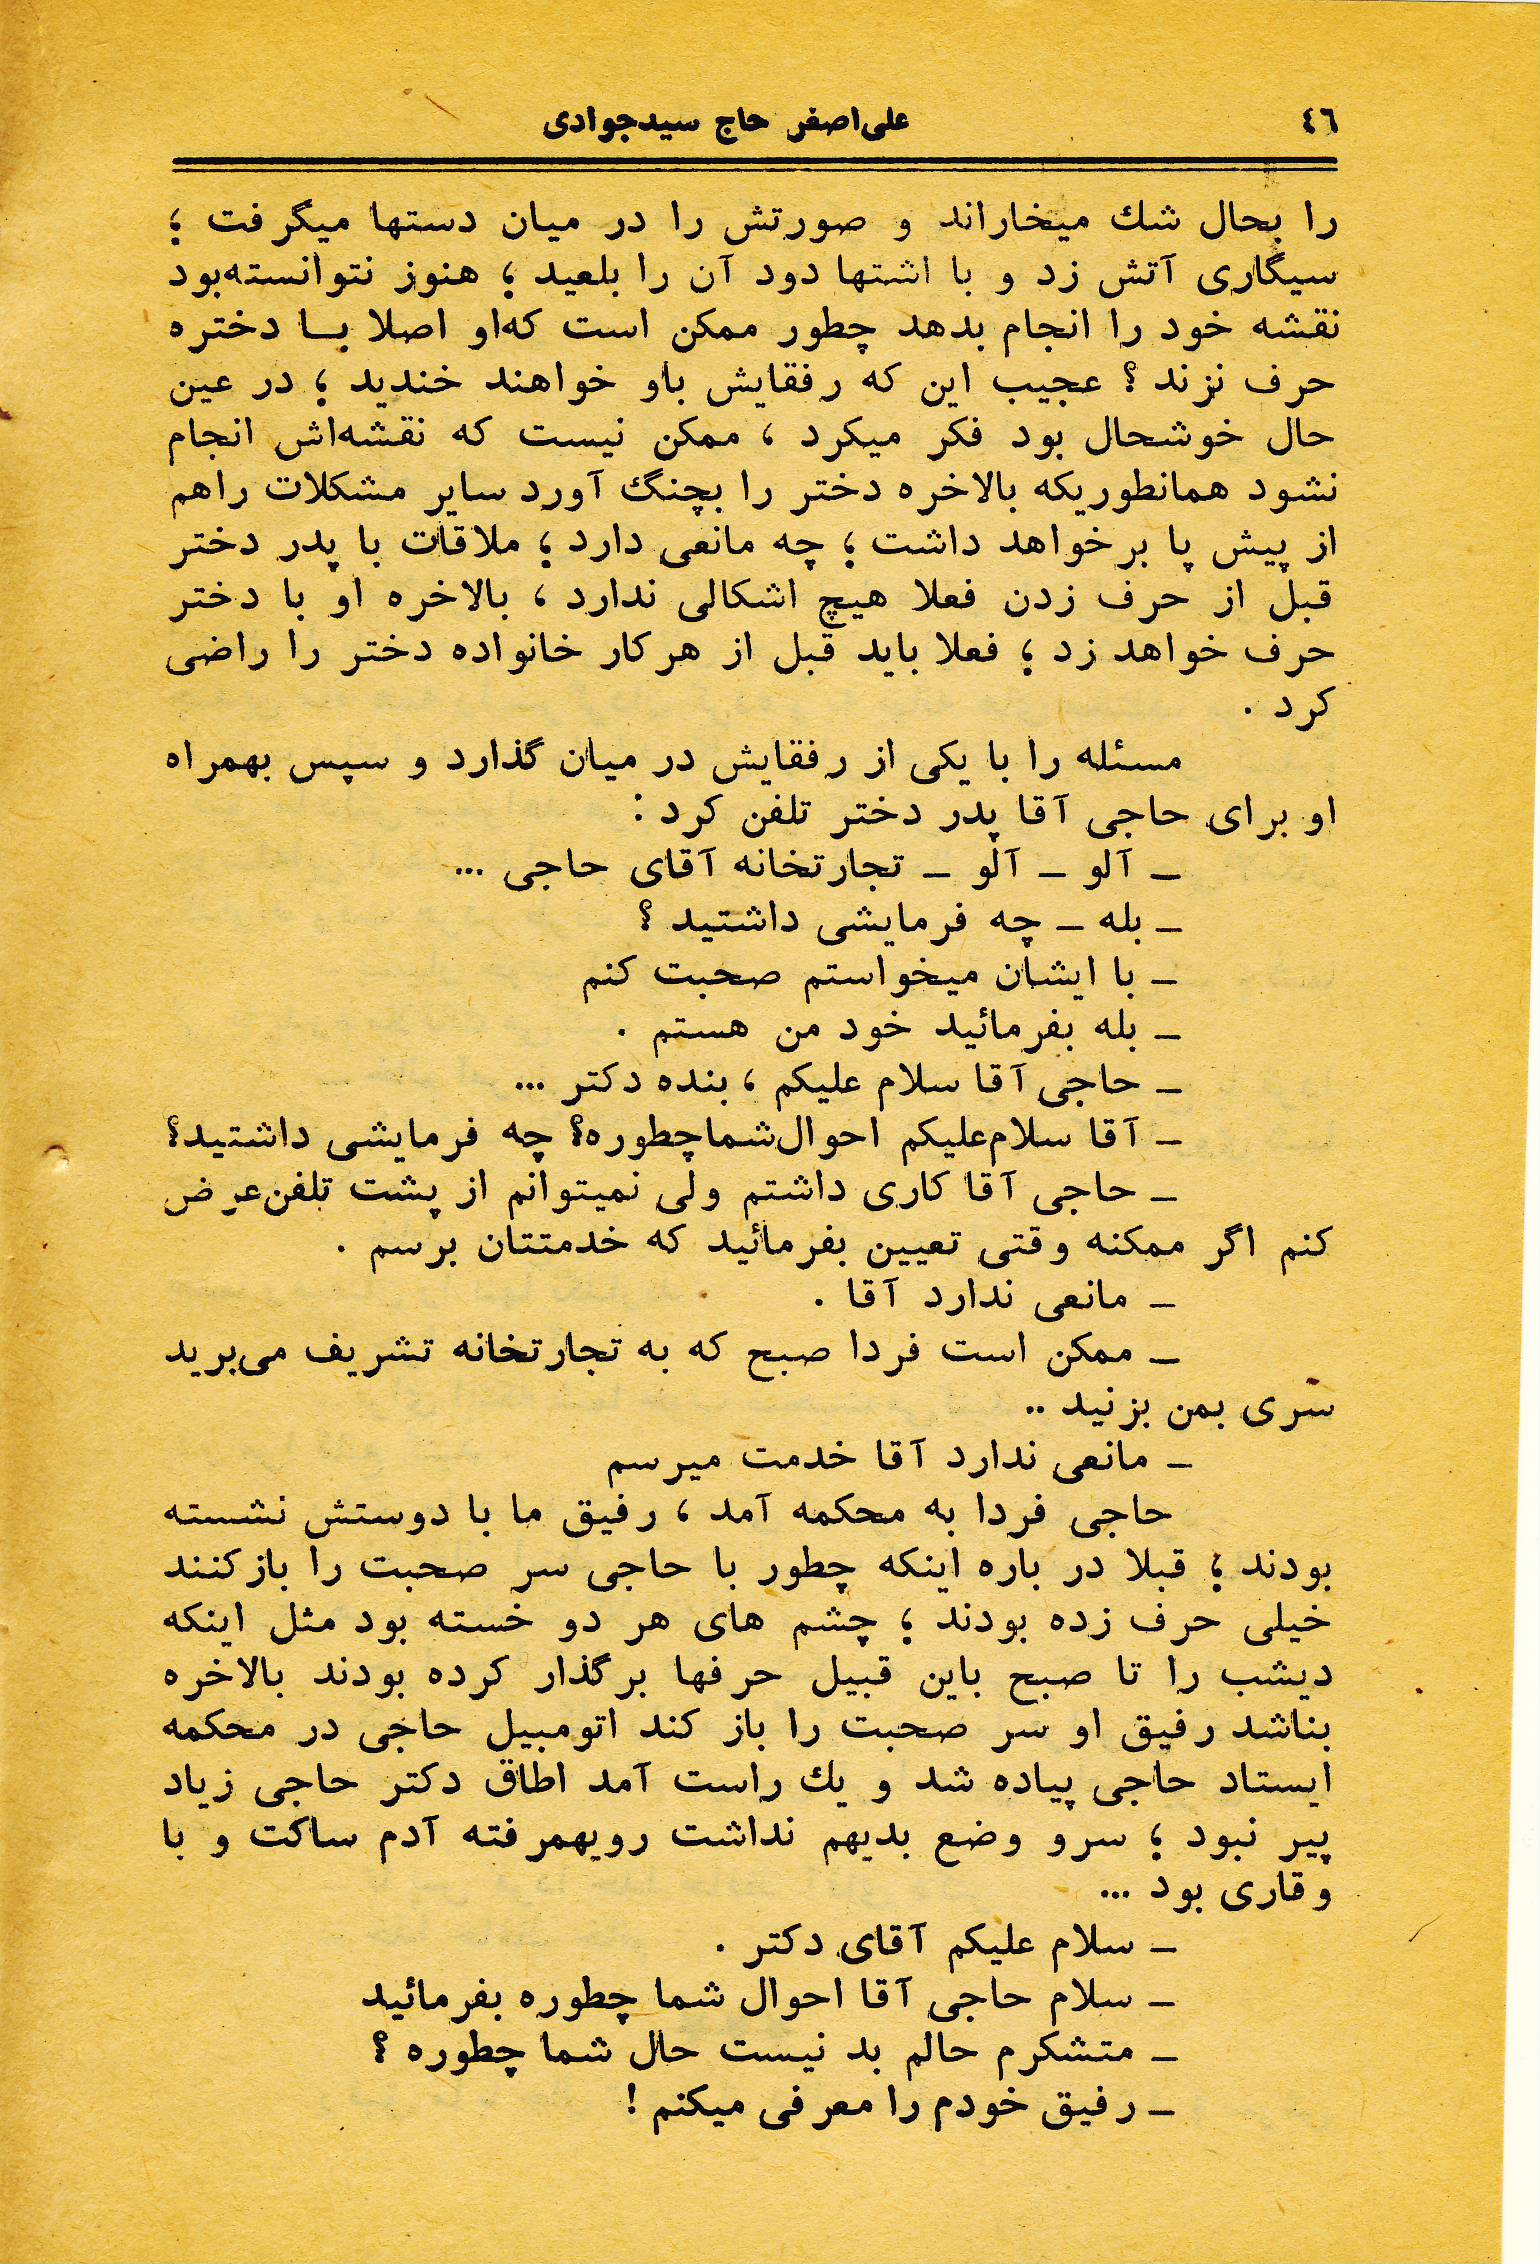 ٤٦
علی‌اصغر حاج سیدجوادی
را بحال شك میخاراند و صورتش را در میان دستها میگرفت ؛
سیگاری آتش زد و با اشتها دود آن را بلعید ؛ هنوز نتوانسته‌بود
نقشه خود را انجام بدهد چطور ممکن است که‌او اصلا بــا دختره
حرف نزند ؟ عجیب این که رفقایش باو خواهند خندید ؛ در عین
حال خوشحال بود فکر میکرد ، ممکن نیست که نقشه‌اش انجام
نشود همانطوریکه بالاخره دختر را بچنگ آورد سایر مشکلات راهم
از پیش پا برخواهد داشت ؛ چه مانعی دارد ؛ ملاقات با پدر دختر
قبل از حرف زدن فعلا هیچ اشکالی ندارد ، بالاخره او با دختر
حرف خواهد زد ؛ فعلا باید قبل از هرکار خانواده دختر را راضی
کرد .
مسئله را با یکی از رفقایش در میان گذارد و سپس بهمراه
او برای حاجی آقا پدر دختر تلفن کرد :
ــ آلو ــ آلو ــ تجارتخانه آقای حاجی ...
ــ بله ــ چه فرمایشی داشتید ؟
ــ با ایشان میخواستم صحبت کنم
ــ بله بفرمائید خود من هستم .
ــ حاجی آقا سلام علیکم ، بنده دکتر ...
ــ آقا سلام‌علیکم احوال‌شماچطوره؟ چه فرمایشی داشتید؟
ــ حاجی آقا کاری داشتم ولی نمیتوانم از پشت تلفن‌عرض
کنم اگر ممکنه وقتی تعیین بفرمائید که خدمتتان برسم .
ــ مانعی ندارد آقا .
ــ ممکن است فردا صبح که به تجارتخانه تشریف می‌برید
سری بمن بزنید ..
ــ مانعی ندارد آقا خدمت میرسم
حاجی فردا به محکمه آمد ، رفیق ما با دوستش نشسته
بودند ؛ قبلا در باره اینکه چطور با حاجی سر صحبت را بازکنند
خیلی حرف زده بودند ؛ چشم های هر دو خسته بود مثل اینکه
دیشب را تا صبح باین قبیل حرفها برگذار کرده بودند بالاخره
بناشد رفیق او سر صحبت را باز کند اتومبیل حاجی در محکمه
ایستاد حاجی پیاده شد و یك راست آمد اطاق دکتر حاجی زیاد
پیر نبود ؛ سرو وضع بدیهم نداشت رویهمرفته آدم ساکت و با
وقاری بود ...
ــ سلام علیکم آقای دکتر .
ــ سلام حاجی آقا احوال شما چطوره بفرمائید
ــ متشکرم حالم بد نیست حال شما چطوره ؟
ــ رفیق خودم را معرفی میکنم !